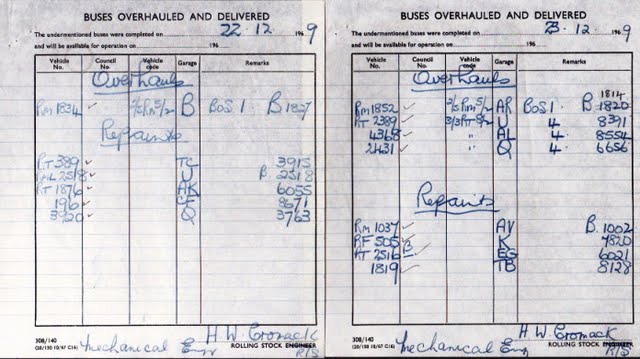 BUSES OVERHAULED AND DELIVERED
The undermentioned buses were completed on 22.12 1969
and will be available for operation on 196
Vehicle No. Council No. Vehicle code Garage Remarks
Overhauls
RM 1834 ✓ 2/5RM5/2 B BOS 1 B 1827
Repaints
RT 389 ✓ TC 3915
RML 2518 ✓ U B 2518
RT 1876 ✓ AK 6055
196 ✓ CF 8671
3920 ✓ Q 3763
308/140
(20/150 10/67 C16)
Mechanical Eng
H W Cromack
ROLLING STOCK ENGINEER
R/S
BUSES OVERHAULED AND DELIVERED
The undermentioned buses were completed on 23.12 1969
and will be available for operation on 196
Vehicle No. Council No. Vehicle code Garage Remarks
Overhauls
1814
RM 1852 ✓ 2/5RM5/2 AR BOS 1 B 1820
RT 2389 ✓ 3/3RT8/2 U 4 8391
4368 ✓ " AL 4 8554
2431 ✓ " Q 4 6656
Repaints
RM 1037 ✓ AV B. 1002
RF 505 ✓ K 4820
RT 2516 B ✓ EG 6021
1819 ✓ TB 8128
308/140
(20/150 10/67 C16)
Mechanical Eng
H W Cromack
ROLLING STOCK ENGINEER
R/S